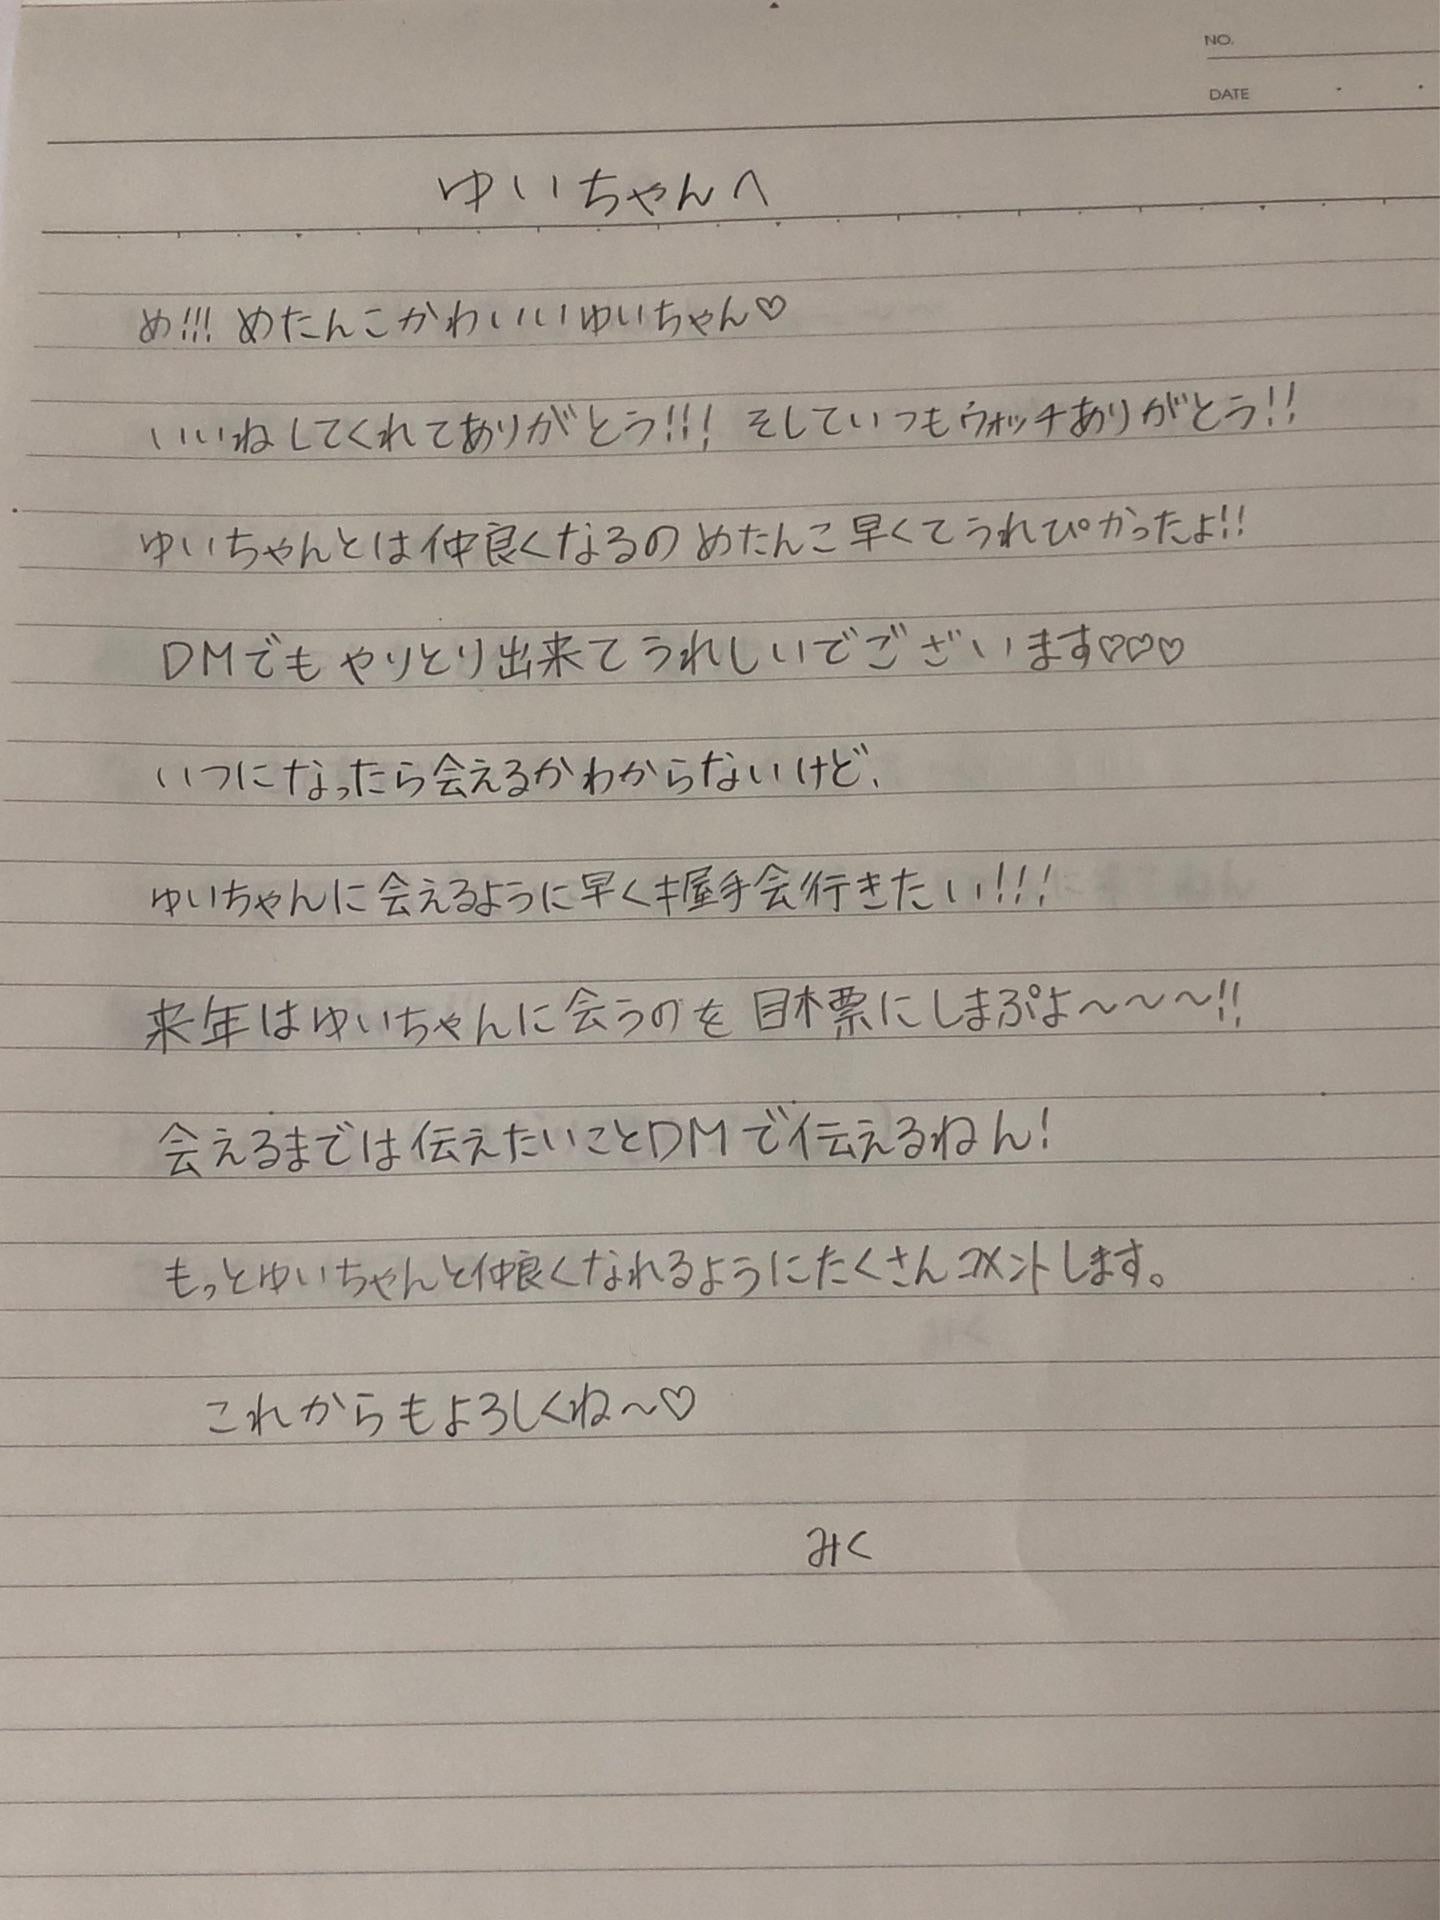 NO.
DATE
ゆいちゃんへ
め!!! めたんこかわいいゆいちゃん♡
いいねしてくれてありがとう!!! そしていつもウォッチありがとう!!
ゆいちゃんとは仲良くなるのめたんこ早くてうれぴかったよ!!
DMでもやりとり出来てうれしいでございます♡♡♡
いつになったら会えるかわからないけど、
ゆいちゃんに会えるように早く握手会行きたい!!!
来年はゆいちゃんに会うのを目標にしまぷよ〜〜〜!!
会えるまでは伝えたいことDMで伝えるねん!
もっとゆいちゃんと仲良くなれるようにたくさんコメントします。
これからもよろしくね〜♡
みく